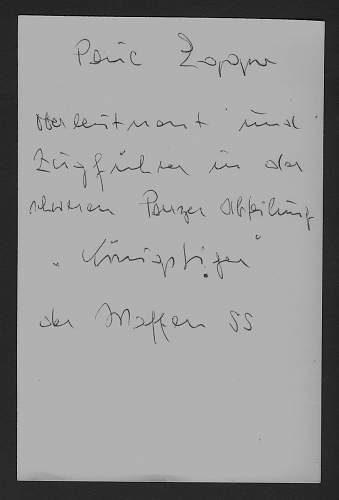 Oberleutnant und
Zugführer in der
schweren Panzer Abteilung
"Königstiger"
der Waffen SS